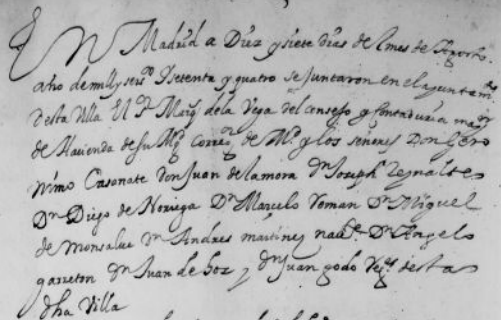 En Madrid a Diez y siete dias del mes de Agosto
año de mill y seisº y setenta y quatro se Juntaron en el ayuntamto
desta Villa El Sr Marqs de la Vega del consejo y Contaduria mayor
de Hacienda de su Mgd Corregor de Md y los señores Don Gero
nimo Casanate don Juan de la mora Dn Joseph Reynaltes
Dn Diego de Noriega Dn Marcelo Roman Dn Miguel
de Monsalue Dn Andres martinez Dn Angelo
garreton Dn Juan de hoz y Dn Juan godo desta
dha Villa